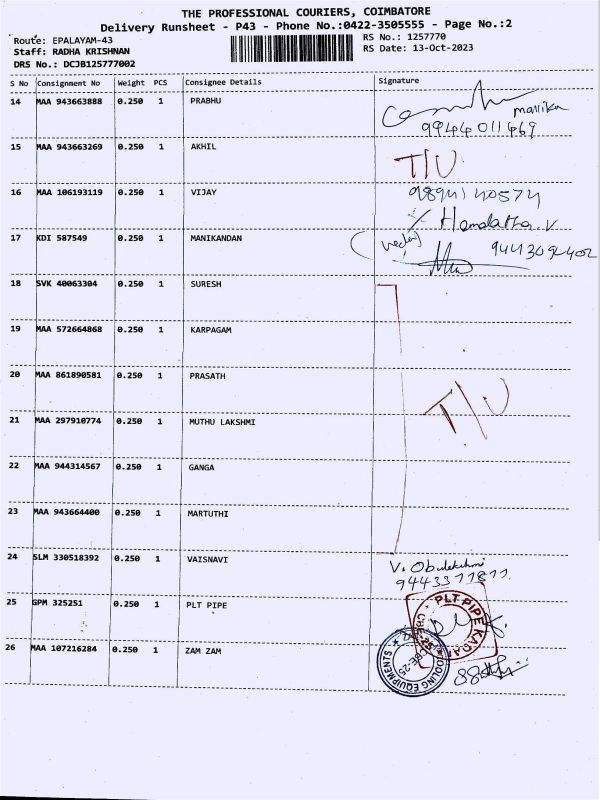 THE PROFESSIONAL COURIERS, COIMBATORE
Delivery Runsheet - P43 - Phone No.:0422-3505555 - Page No.:2
Route: EPALAYAM-43 RS No.: 1257770
Staff: RADHA KRISHNAN RS Date: 13-Oct-2023
DRS No.: DCJB125777002
S No Consignment No Weight PCS Consignee Details Signature
14 MAA 943663888 0.250 1 PRABHU
9944011469
15 MAA 943663269 0.250 1 AKHIL T/U
16 MAA 106193119 0.250 1 VIJAY
Hemalatha.V
17 KDI 587549 0.250 1 MANIKANDAN
18 SVK 40063304 0.250 1 SURESH
19 MAA 572664868 0.250 1 KARPAGAM
20 MAA 861890581 0.250 1 PRASATH
T/U
21 MAA 297910774 0.250 1 MUTHU LAKSHMI
22 MAA 944314567 0.250 1 GANGA
23 MAA 943664400 0.250 1 MARTUTHI
24 SLM 330518392 0.250 1 VAISNAVI
25 GPM 325251 0.250 1 PLT PIPE
PLT PIPE KADAI
CBE-25
26 MAA 107216284 0.250 1 ZAM ZAM
COOLING EQUIPMENTS
CBE-25